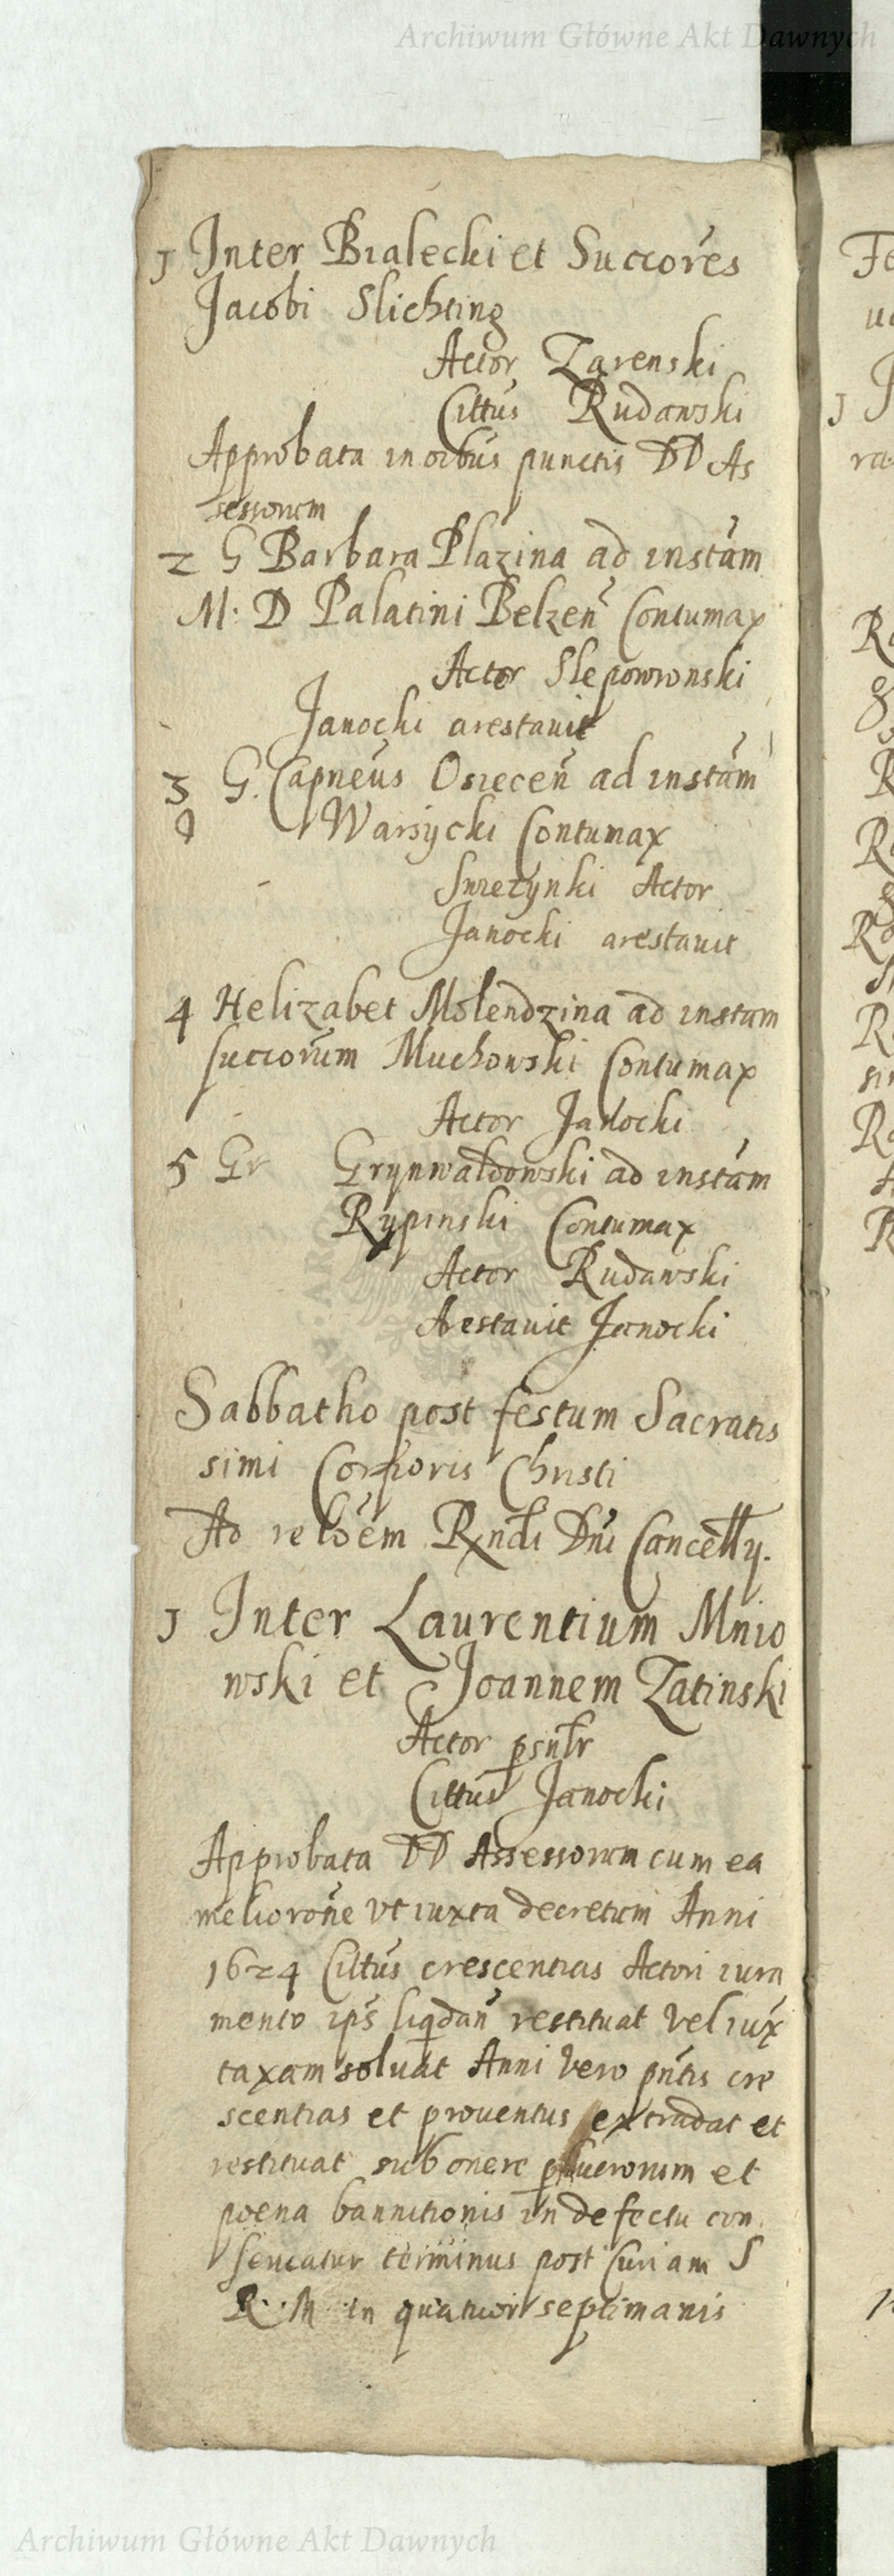 Archiwum Główne Akt Dawnych
1 Inter Bialecki et Succores
Jacobi Slichting
Actor Zarenski
Cittus Rudawski
Approbata in oibus punctis DD As
sessorum
2 G Barbara Plazina ad instam
M. D Palatini Belzen Contumax
Actor Slepowronski
Janocki arestauit
3 G. Capneus Osiecen ad instam
Warsycki Contumax
Swiezynki Actor
Janocki arestauit
4 Helizabet Molendzina ad instam
succorum Muchowski Contumax
Actor Janocki
5 Gr Grynwaldowski ad instam
Rypinski Contumax
Actor Rudawski
Arestauit Janocki
Sabbatho post festum Sacratis
simi Corporis Christi
Ad reloem Rndi Dni Cancelly.
1 Inter Laurentium Mnio
wski et Joannem Zatinski
Actor psnlr
Cittus Janocki
Approbata DD Assessorum cum ea
meliorone vt iuxta decretum Anni
1624 Cittus crescentias Actori iura
mento ips liqdan restituat vel iux
taxam soluat Anni vero pntis cre
scentias et prouentus extradat et
restituat sub onere et
poena bannitionis in defectu con
seruatur terminus post Curiam S
R. M in quatuor septimanis
Archiwum Główne Akt Dawnych